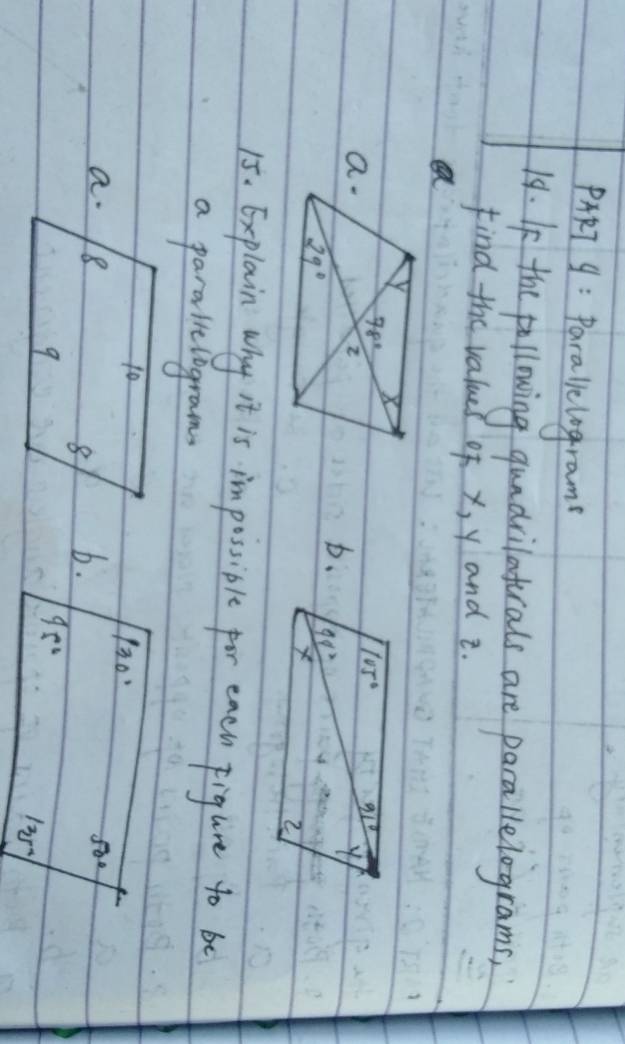 PART 4 : Parallelograms
14. If the following quadrilaterals are parallelograms,
find the values of x, y and z.
a.
y
78°
x
z
29°
b.
105°
y
x
z
15. Explain why it is impossible for each figure to be
a parallelogram
a.
10
8
8
9
b.
130°
50°
135°